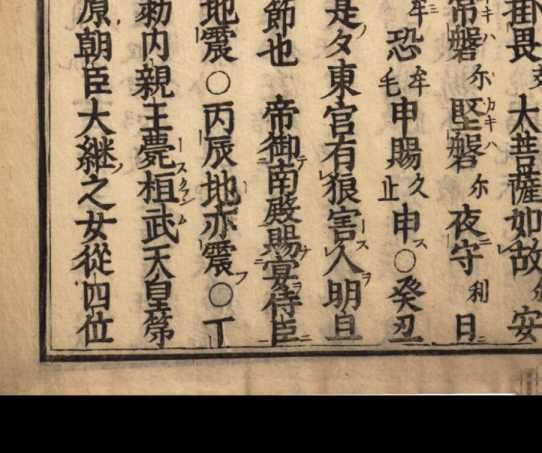 掛畏支大菩薩如故久安
常磐尓堅磐尓夜守利日
牟恐毛牟申賜久止申〇癸丑
是夕東宮有狼害人明旦
節也 帝御南殿賜宴侍臣
地震〇丙辰地亦震〇丁
勅内親王薨桓武天皇第
原朝臣大継之女從四位